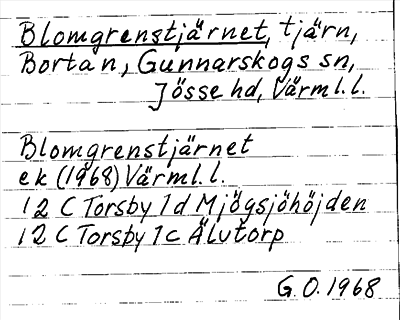 Blomgrenstjärnet, tjärn,
Bortan, Gunnarskogs sn,
Jösse hd, Värml. l.
Blomgrenstjärnet
ek (1968) Värml. l.
12 C Torsby 1d Mjögsjöhöjden
12 C Torsby 1c Älutorp
G. O. 1968